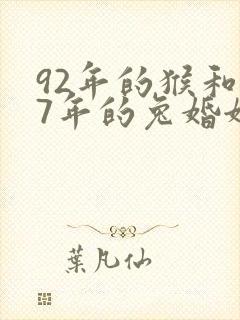 92年的猴和
7年的兔婚
葉凡仙